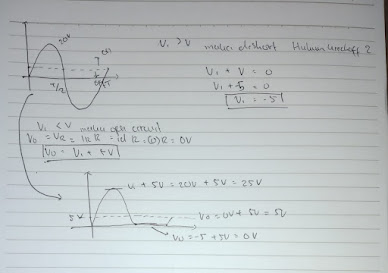 20V
T/2
T
Vi > V maka dishort Hukum Kirchoff 2
Vi + V = 0
Vi + 5 = 0
Vi = -5
Vi < V maka open circuit
Vo = VR = IR R = id R = (0) R = 0V
Vo = Vi + 5V
Vi + 5V = 20V + 5V = 25V
5V
Vo = 0V + 5V = 5V
Vo = -5 + 5V = 0V